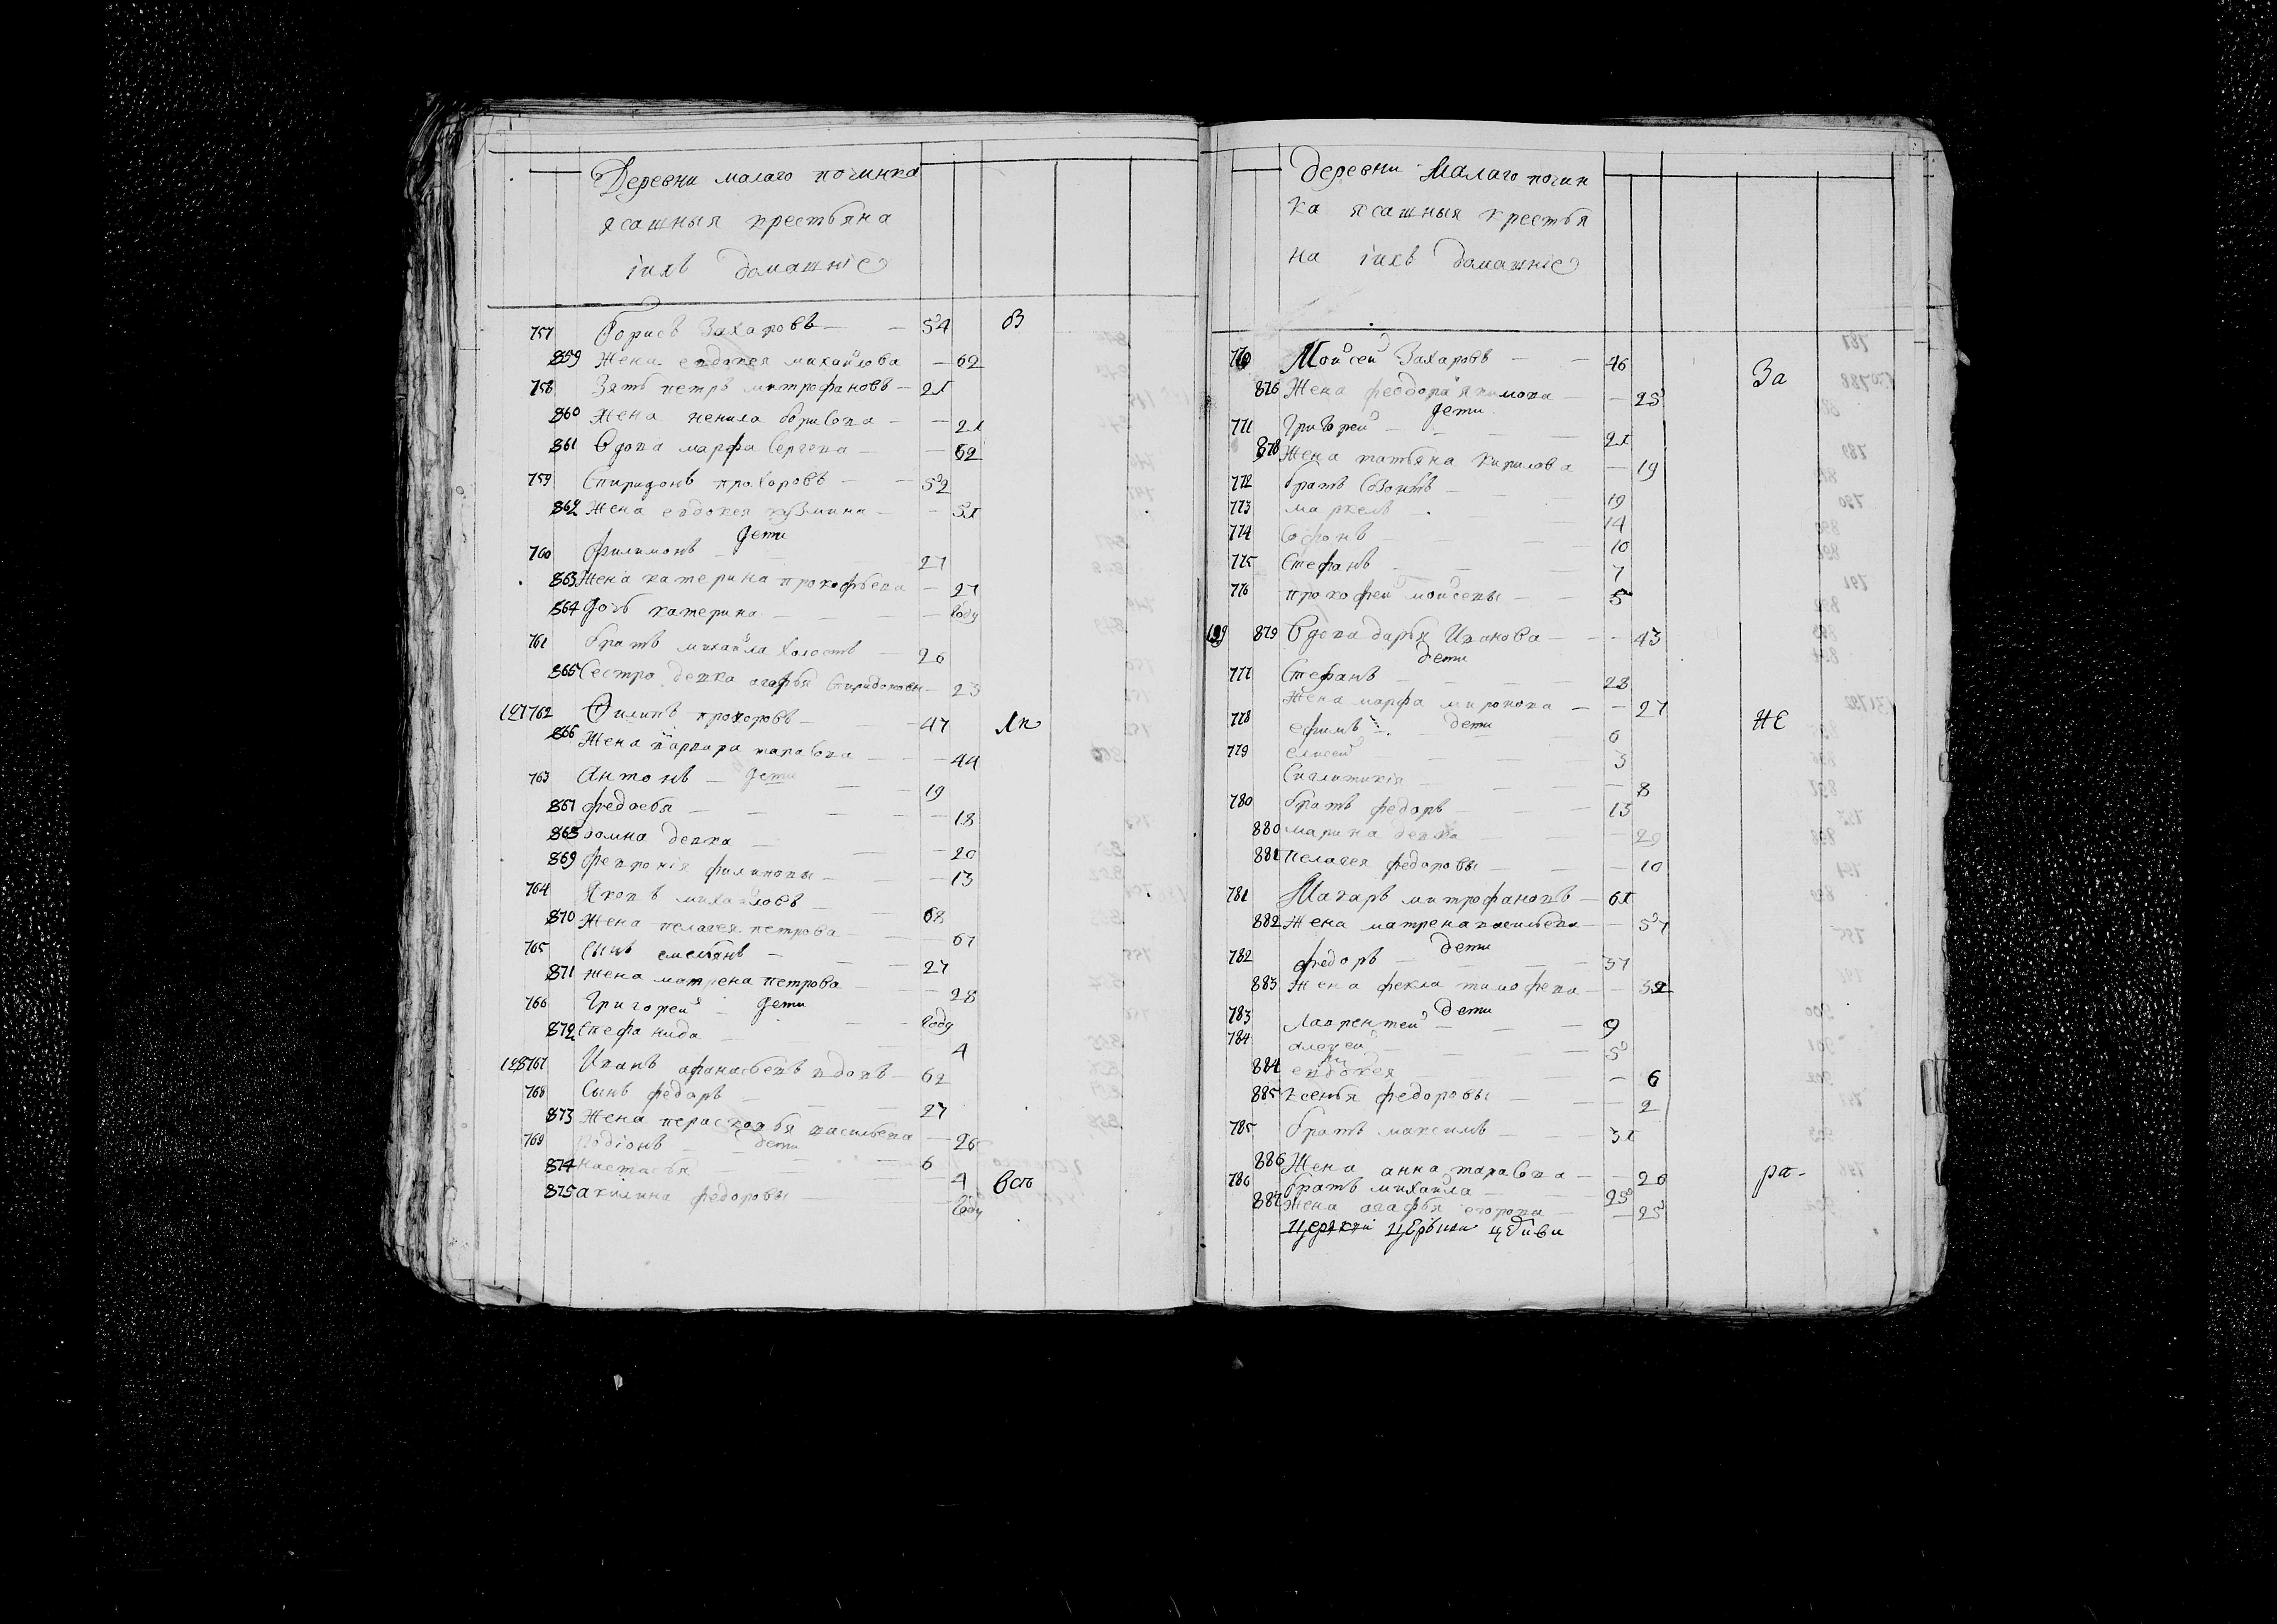 Деревни малаго починка
ясашныя крестьяна
iихъ домашнiе
757 Борисъ Захаровъ — 54 В
859 Жена евдокея михайлова — 62
758 Зять петръ митрофановъ — 21
860 Жена ненила борисова — 21
861 Вдова марфа Сергеева — 62
759 Спиридонъ прохоровъ — 52
862 Жена евдокея кузмина — 51
дети
760 филимонъ — 27
863 Жена катерина прокофьева — 27
864 дочь катерина — году
761 братъ михайла холостъ — 26
865 Сестра девка агафья Спиридоновы — 23
127 762 Филипъ прохоровъ — 47
866 Жена варвара тарасова — 44
763 Антонъ — дети 19
867 федосья — 18
868 домна девка — 20
869 феврониiя филиповы — 13
764 Яковъ михайловъ — 68
870 Жена пелагея петрова — 67
765 Сынъ емельянъ — 27
871 жена матрена петрова — 28
766 Григорей — дети году
872 Стефанида — 4
128 767 Иванъ афанасьевъ вдовъ — 62
768 Сынъ федоръ — 27
873 Жена перасковья васильева — 26
769 Родiонъ — дети 6
874 настасья — 4 всѣ
875 акилина федоровы — году
деревни Малаго почин
ка ясашныя крестья
на iихъ домашнiе
770 Мойсей Захаровъ — 46 За
876 Жена феодора якимова — 25
дети
771 Григорей — 21
878 Жена татьяна Кирилова — 19
772 братъ Созонтъ — 19
773 маркелъ — 14
774 Софонъ — 10
775 Стефанъ — 7
776 прокофей мойсеевы — 5
129 879 Вдова дарья Иванова — 43
дети
777 Стефанъ — 28
Жена марфа миронова — 27 не
778 ефимъ — дети 6
779 елисей — 3
Сиглитикiя — 8
780 братъ федоръ — 13
880 марина девка — 20
881 пелагея федоровы — 10
781 Макаръ митрофановъ — 61
882 Жена матрена васильева — 57
дети
782 федоръ — 37
883 Жена фекла тимофеева — 32
дети
783 Лаврентей — 9
784 алексей — 5
884 евдокея — 6
885 ксенья федоровы — 2
785 братъ максимъ — 31
886 Жена анна тарасова — 20 ра-
786 братъ михайла — 25
887 Жена агафья егорова — 25